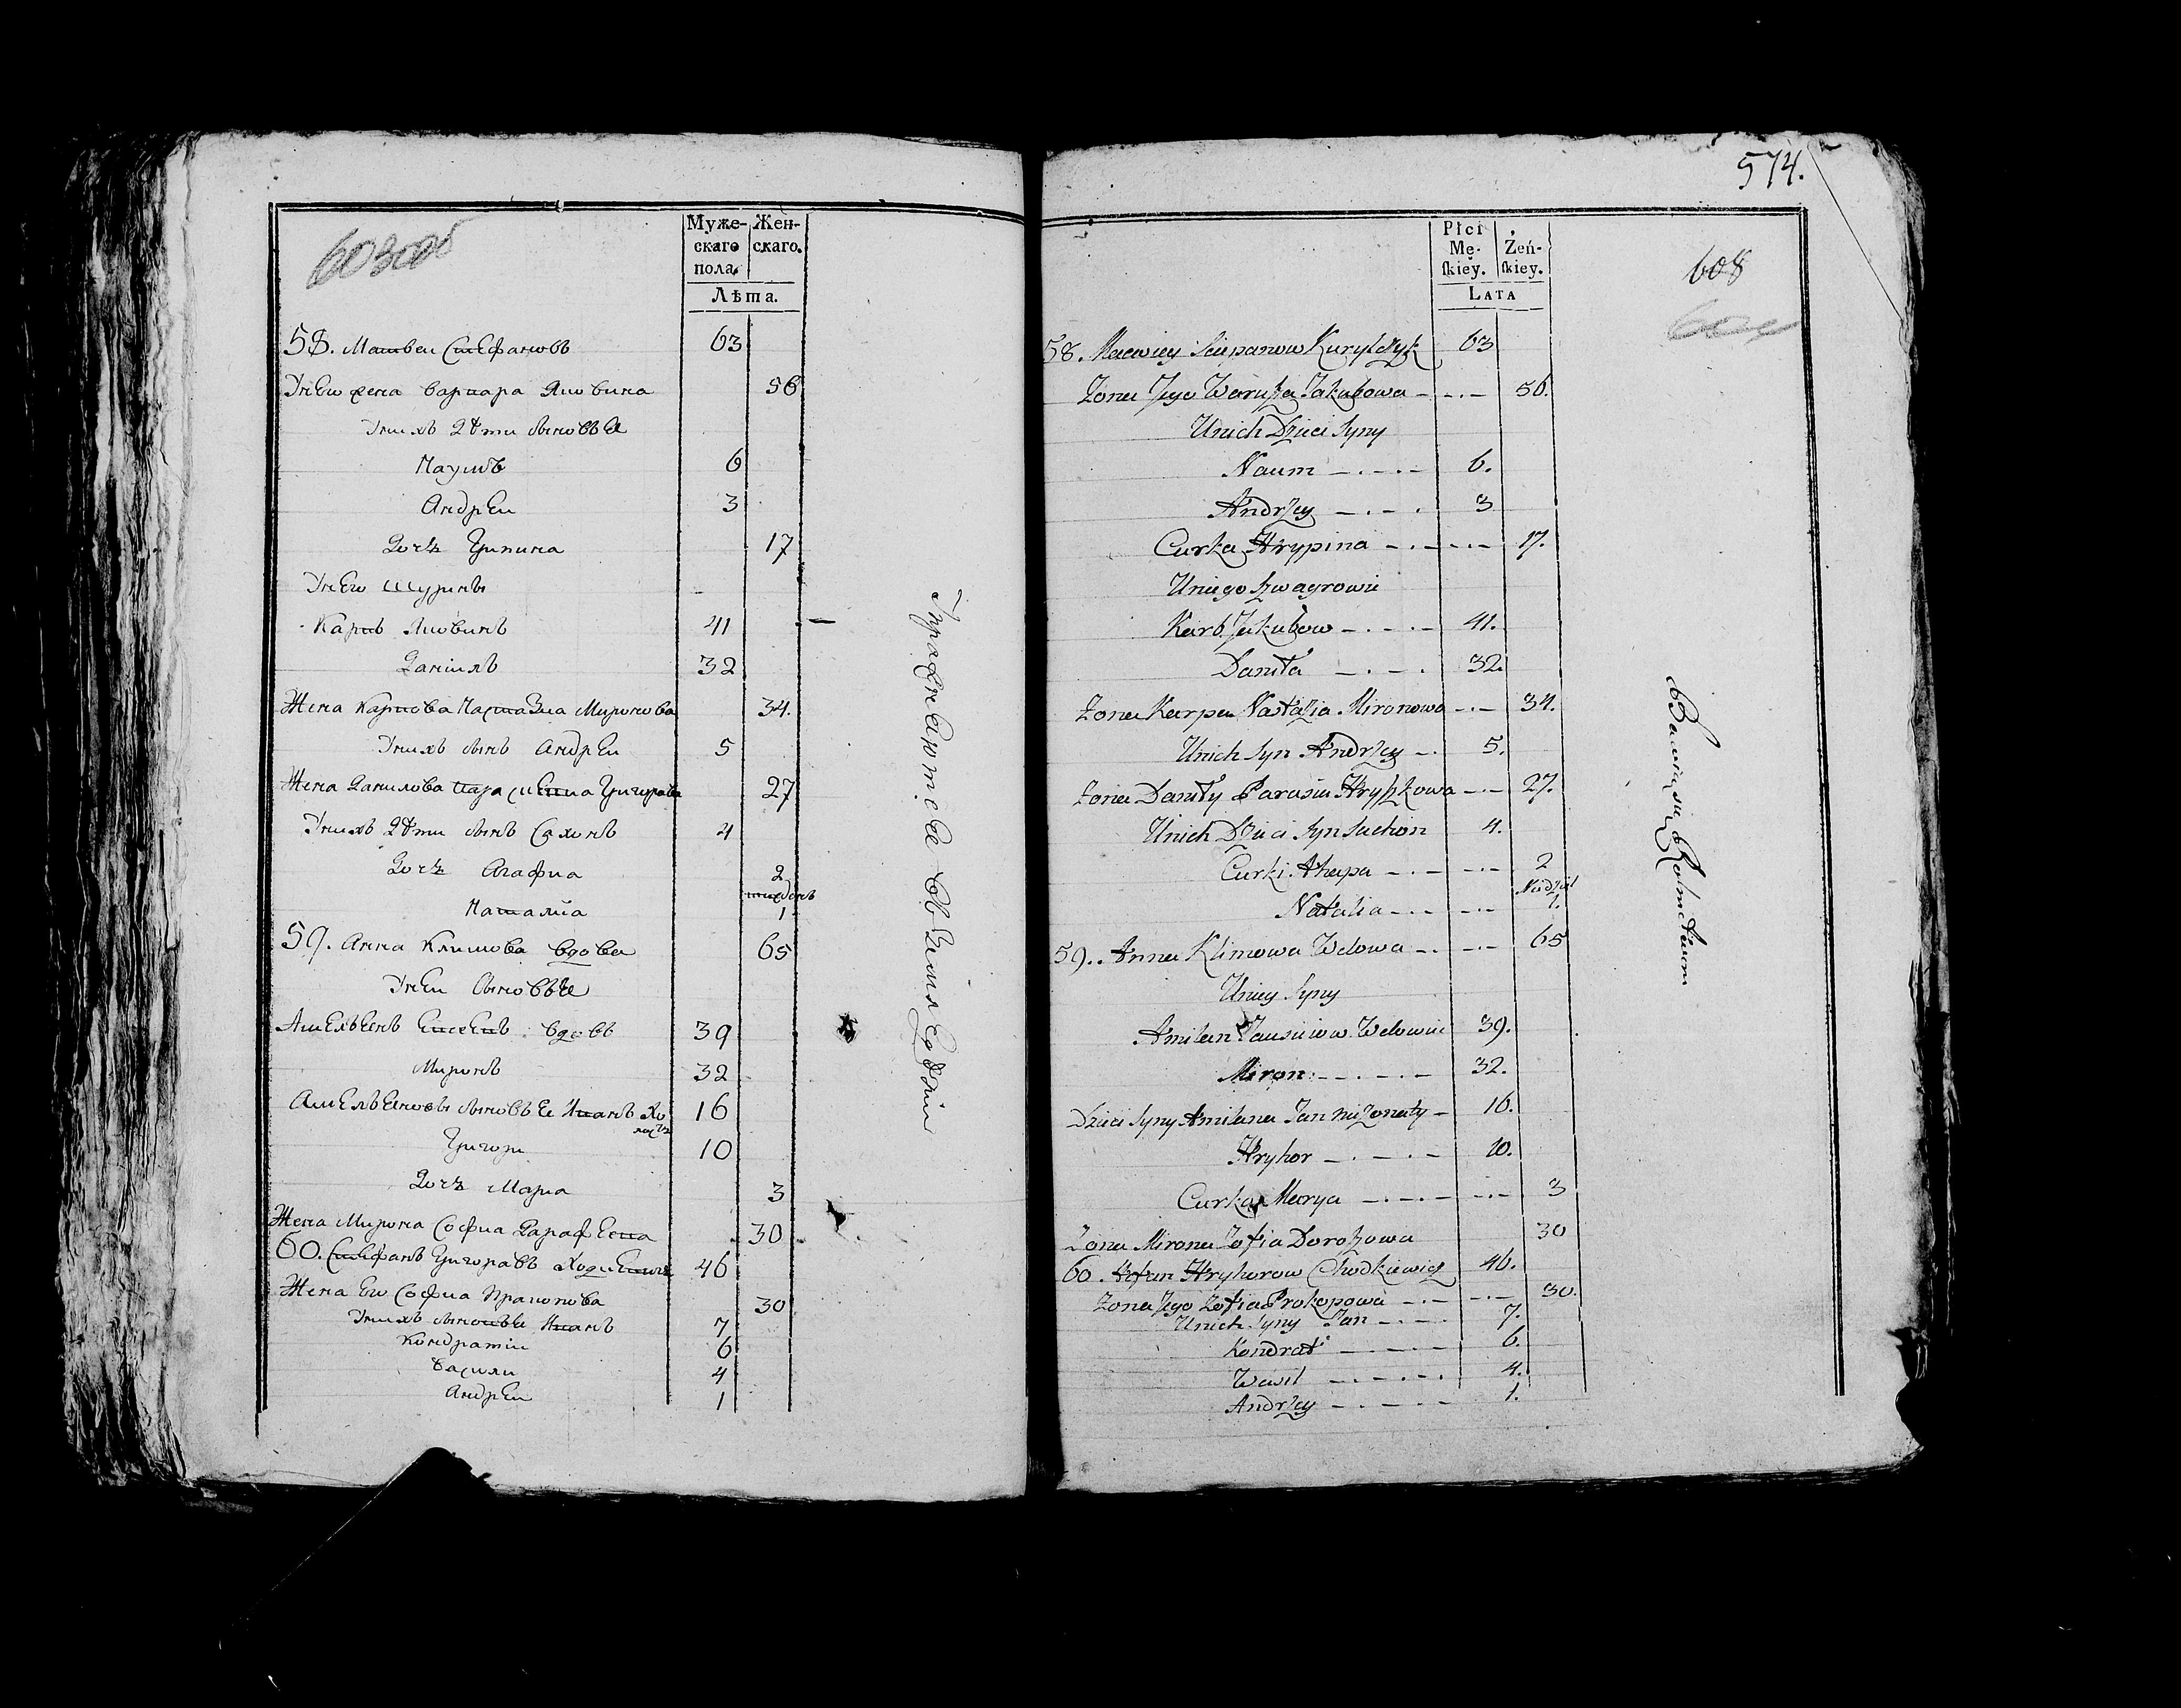 603 об
Муже-
скаго
пола.
Жен-
скаго.
Лѣта.
58. Матвеи Стефановъ 63
Унего жена Варвара Яковина 56
Унихъ дѣти сыновѣя
Наумъ 6
Андреи 3
дочь Грипина 17
Унего шурины
Карпъ Яковинъ 41
Данiилъ 32
Жена Карпова Настазиа Миронова 34.
Унихъ сынъ Андреи 5
Жена Данилова Парасцепиа Григорова 27
Унихъ дѣти сынъ Сахонъ 4
дочь Агафиа 2
тиждень
Наталiа 1
59. Анна Климова вдова 65
Унеи сыновѣя
Амельенъ вдовъ 39
Миронъ 32
Амельеновы сыновья Иванъ холостъ 16
Григори 10
дочь Мариа 3
Жена Мирона Софиа 30
60. Стефанъ Григоравъ Ходкевичъ 46
Жена его Софиа Пракопова 30
Унихъ сыновья Иванъ 7
Кондратiи 6
Васили 4
Андреи 1
Упражняются въ земледѣлiи
574.
608
Płci
Mę-
ſkiey.
Żeń-
ſkiey.
LATA
58. Maciey Sciepanow Kurylczyk 63
Zona Jego Waruka Jakubowa 56.
Unich Dzieci Syny
Naum 6.
Andrzey 3
Curka Hrypina 17.
Uniego Szwagrowie
Karp Jakubow 41.
Daniła 32.
Zona Karpa Nastazia Mironowa 34.
Unich Syn Andrzey 5.
Zona Daniły Parasia Hryszkowa 27.
Unich Dzieci Syn Sachon 4.
Curki Ahapa 2
Niedziel
Natalia 1.
59. Anna Klimowa Wdowa 65
Uniey Syny
Amilan Wdowiec 39.
Miron 32.
Dzieci Syny Amilana Jan nieżonaty 16.
Hryhor 10.
Curka Marya 3
Zona Mirona Zofia Doroszowa 30
60. Stefan Hryhorow Chodkiewicz 46.
Zona Jego Zofia Prokopowa 30.
Unich Syny Jan 7.
Kondrat 6.
Wasil 4.
Andrzey 1.
Bawią się Rolnictwem